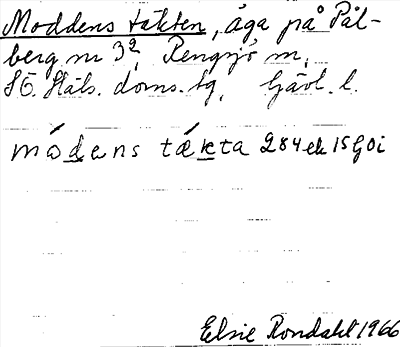 Moddens täkten, äga på Pål-
berg nr 3², Rengsjö sn,
SÖ. Häls. doms. tg, Gävl. l.
módens tǽkta 284 ek 15 G 0 i
Elsie Rondahl 1966